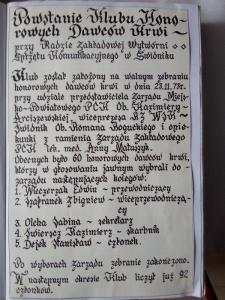 Powstanie Klubu Hono-
rowych Dawców Krwi –
przy Radzie Zakładowej Wytwórni
Sprzętu Komunikacyjnego w Świdniku
Klub został założony na walnym zebraniu
honorowych dawców krwi w dniu 23.11.73r.
przy udziale przedstawiciela Zarządu Miejs-
ko-Powiatowego PCK Ob. Kazimiery
Arciszewskiej, wiceprezesa RZ WSK –
Świdnik Ob. Romana Boguckiego i opie-
kunki z ramienia Zarządu Zakładowego
PCK lek. med. Anny Matuszyk.
Obecnych było 60 honorowych dawców krwi,
którzy w głosowaniu jawnym wybrali do
zarządu następujących kolegów:
1. Wieczerzak Edwin – przewodniczący
2. Szafranek Zbigniew – wiceprzewodniczą-
cy
3. Oleba Sabina – sekretarz
4. Świerszcz Kazimierz – skarbnik
5. Dejek Stanisław – członek.
Po wyborach zarządu zebranie zakończono.
W następnym okresie Klub liczył już 92
członków.